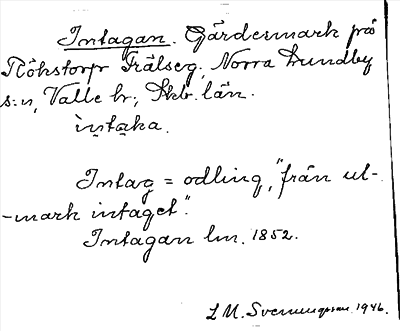 Intagan. Gärdesmark på
Rökstorp Frälseg. Norra Lundby
s:n, Valle hr; Skb. län.
ìntaka.
Intag = odling, "från ut-
-mark intaget".
Intagan lm. 1852.
L M. Svenungsson 1946.